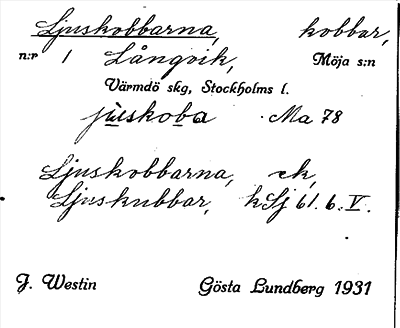 Ljuskobbarna, kobbar,
n:r 1 Långvik, Möja s:n
Värmdö skg, Stockholms l.
juskoba Ma 78
Ljuskobbarna, ek,
Ljuskubbar, hSj 61.6.V.
J. Westin Gösta Lundberg 1931